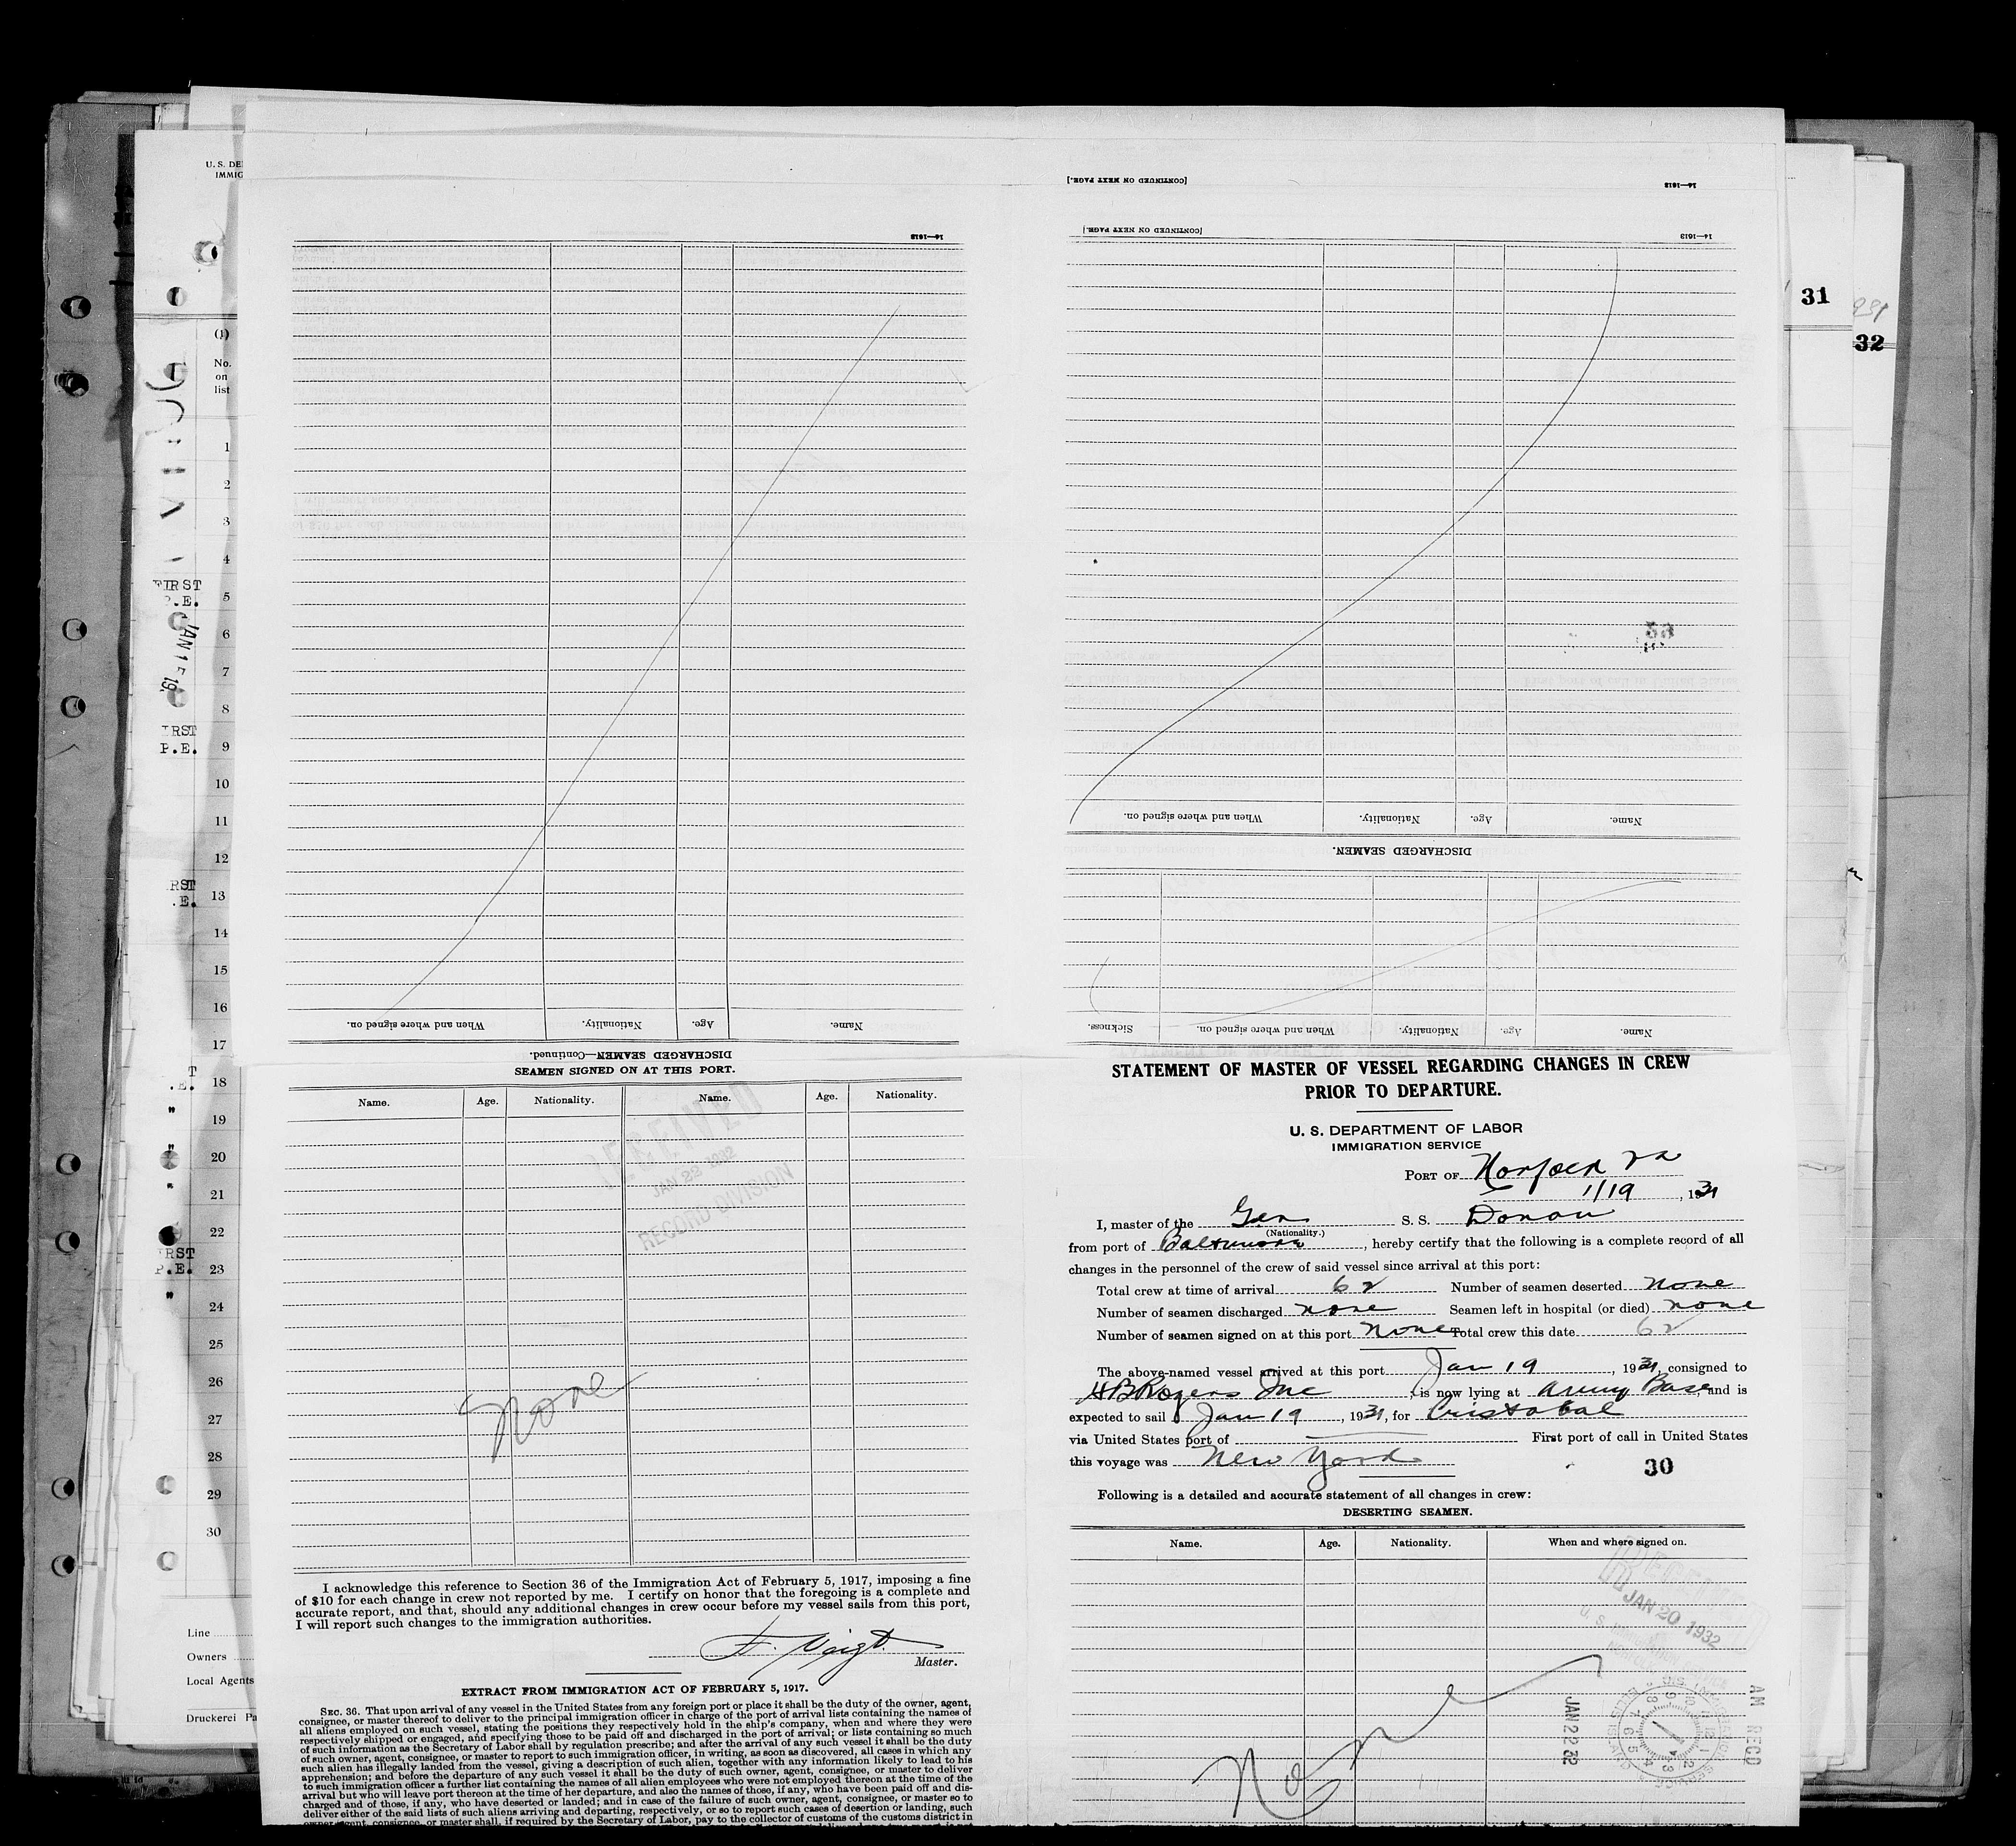 U. S. DE
IMMIG
[CONTINUED ON NEXT PAGE.]
14—1613
14—1613
[CONTINUED ON NEXT PAGE.]
14—1613
31
32
(1)
No.
on
list
1
2
3
4
5
6
7
8
9
10
11
12
13
14
15
16
17
18
19
20
21
22
23
24
25
26
27
28
29
30
FIRST
P.E.
JAN 1
RST
P.E.
RST
.E.
RST
P.E.
Line
Owners
Local Agents
Druckerei Pa
Name. Age. Nationality. When and where signed on.
DISCHARGED SEAMEN.
Name. Age. Nationality. When and where signed on. Sickness.
Name. Age. Nationality. When and where signed on.
DISCHARGED SEAMEN—Continued.
SEAMEN SIGNED ON AT THIS PORT.
Name. Age. Nationality. Name. Age. Nationality.
RECEIVED
JAN 22 1932
RECORD DIVISION
None
I acknowledge this reference to Section 36 of the Immigration Act of February 5, 1917, imposing a fine
of $10 for each change in crew not reported by me. I certify on honor that the foregoing is a complete and
accurate report, and that, should any additional changes in crew occur before my vessel sails from this port,
I will report such changes to the immigration authorities.
F. Voigt
Master.
EXTRACT FROM IMMIGRATION ACT OF FEBRUARY 5, 1917.
SEC. 36. That upon arrival of any vessel in the United States from any foreign port or place it shall be the duty of the owner, agent,
consignee, or master thereof to deliver to the principal immigration officer in charge of the port of arrival lists containing the names of
all aliens employed on such vessel, stating the positions they respectively hold in the ship's company, when and where they were
respectively shipped or engaged, and specifying those to be paid off and discharged in the port of arrival; or lists containing so much
of such information as the Secretary of Labor shall by regulation prescribe; and after the arrival of any such vessel it shall be the duty
of such owner, agent, consignee, or master to report to such immigration officer, in writing, as soon as discovered, all cases in which any
such alien has illegally landed from the vessel, giving a description of such alien, together with any information likely to lead to his
apprehension; and before the departure of any such vessel it shall be the duty of such owner, agent, consignee, or master to deliver
to such immigration officer a further list containing the names of all alien employees who were not employed thereon at the time of the
arrival but who will leave port thereon at the time of her departure, and also the names of those, if any, who have been paid off and dis-
charged and of those, if any, who have deserted or landed; and in case of the failure of such owner, agent, consignee, or master so to
deliver either of the said lists of such aliens arriving and departing, respectively, or so to report such cases of desertion or landing, such
owner, agent, consignee, or master shall, if required by the Secretary of Labor, pay to the collector of customs of the customs district in
STATEMENT OF MASTER OF VESSEL REGARDING CHANGES IN CREW
PRIOR TO DEPARTURE.
U. S. DEPARTMENT OF LABOR
IMMIGRATION SERVICE
PORT OF Norfolk Va
1/19, 1931
I, master of the Ger S. S. Donau
(Nationality.)
from port of Baltimore, hereby certify that the following is a complete record of all
changes in the personnel of the crew of said vessel since arrival at this port:
Total crew at time of arrival 62 Number of seamen deserted none
Number of seamen discharged none Seamen left in hospital (or died) none
Number of seamen signed on at this port none Total crew this date 62
The above-named vessel arrived at this port Jan 19, 1931, consigned to
HB Rogers Inc, is now lying at Army Base, and is
expected to sail Jan 19, 1931, for Cristobal
via United States port of First port of call in United States
this voyage was New York
30
Following is a detailed and accurate statement of all changes in crew:
DESERTING SEAMEN.
Name. Age. Nationality. When and where signed on.
None
RECEIVED
JAN 20 1932
JAN 22 32
AM REC'D